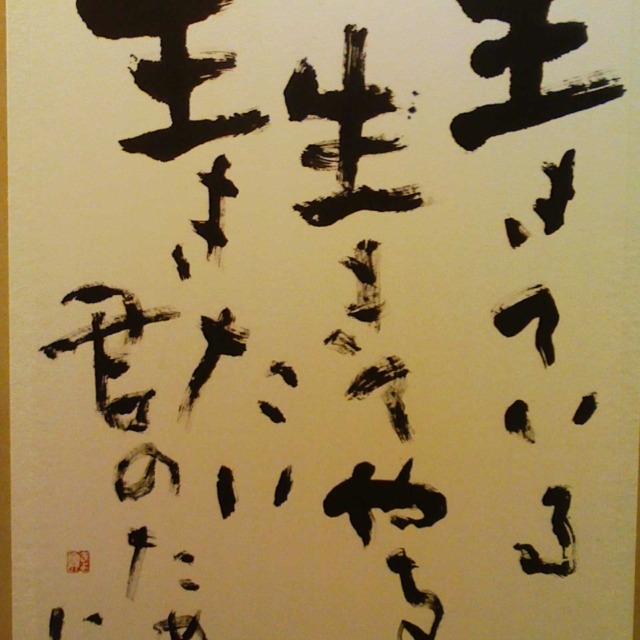 生きている
生きてやる
生きたい
君のため
に